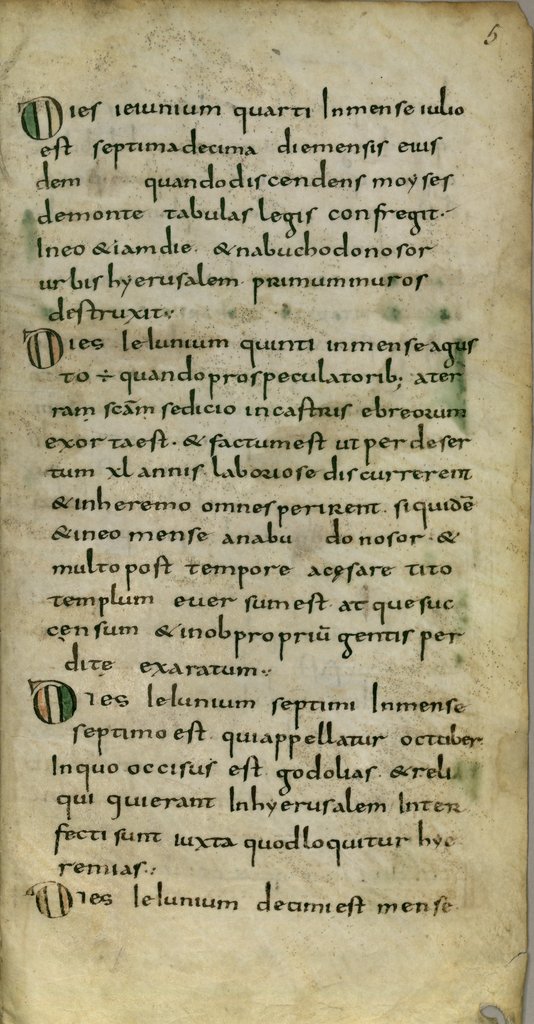 5
Dies ieiunium quarti Inmense iulio
est septimadecima diemensis eius
dem quandodiscendens moyses
demonte tabulas legis confregit.
Ineo &iamdie. &nabuchodonosor
urbishyerusalem primummuros
destruxit.
Dies Ieiunium quinti inmenseagus
to ÷ quandoprospeculatorib; ater
ram scām sedicio incastris ebreorum
exortaest. &factumest utperdeser
tum xl annis laboriose discurrerent
&inheremo omnesperirent. siquidē
&ineo mense anabu donosor. &
multopost tempore acęsare tito
templum eversumest. atquesuc
censum &inobpropriū gentis per
dite exaratum.
Dies Ieiunium septimi Inmense
septimo est. quiappellatur october
Inquo occisus est godolias. &reli
qui quierant Inhyerusalem Inter
fecti sunt iuxta quodloquitur hye
remias.
Dies Ieiunium decimiest mense